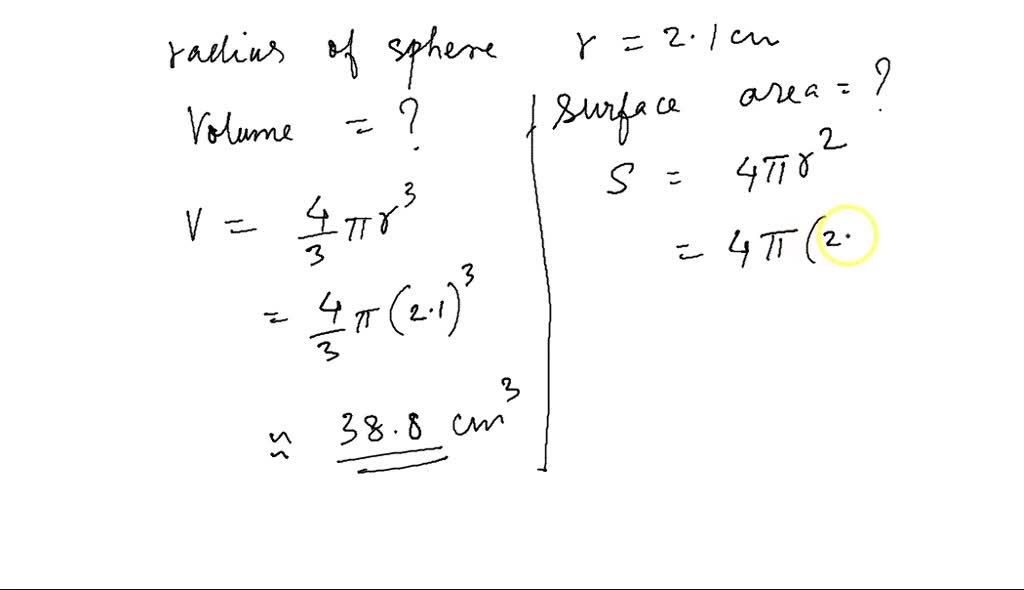 radius of sphere r = 2.1 cm
Volume = ?
V = 4/3 πr³
= 4/3 π(2.1)³
≈ 38.8 cm³
Surface area = ?
S = 4πr²
= 4π(2.